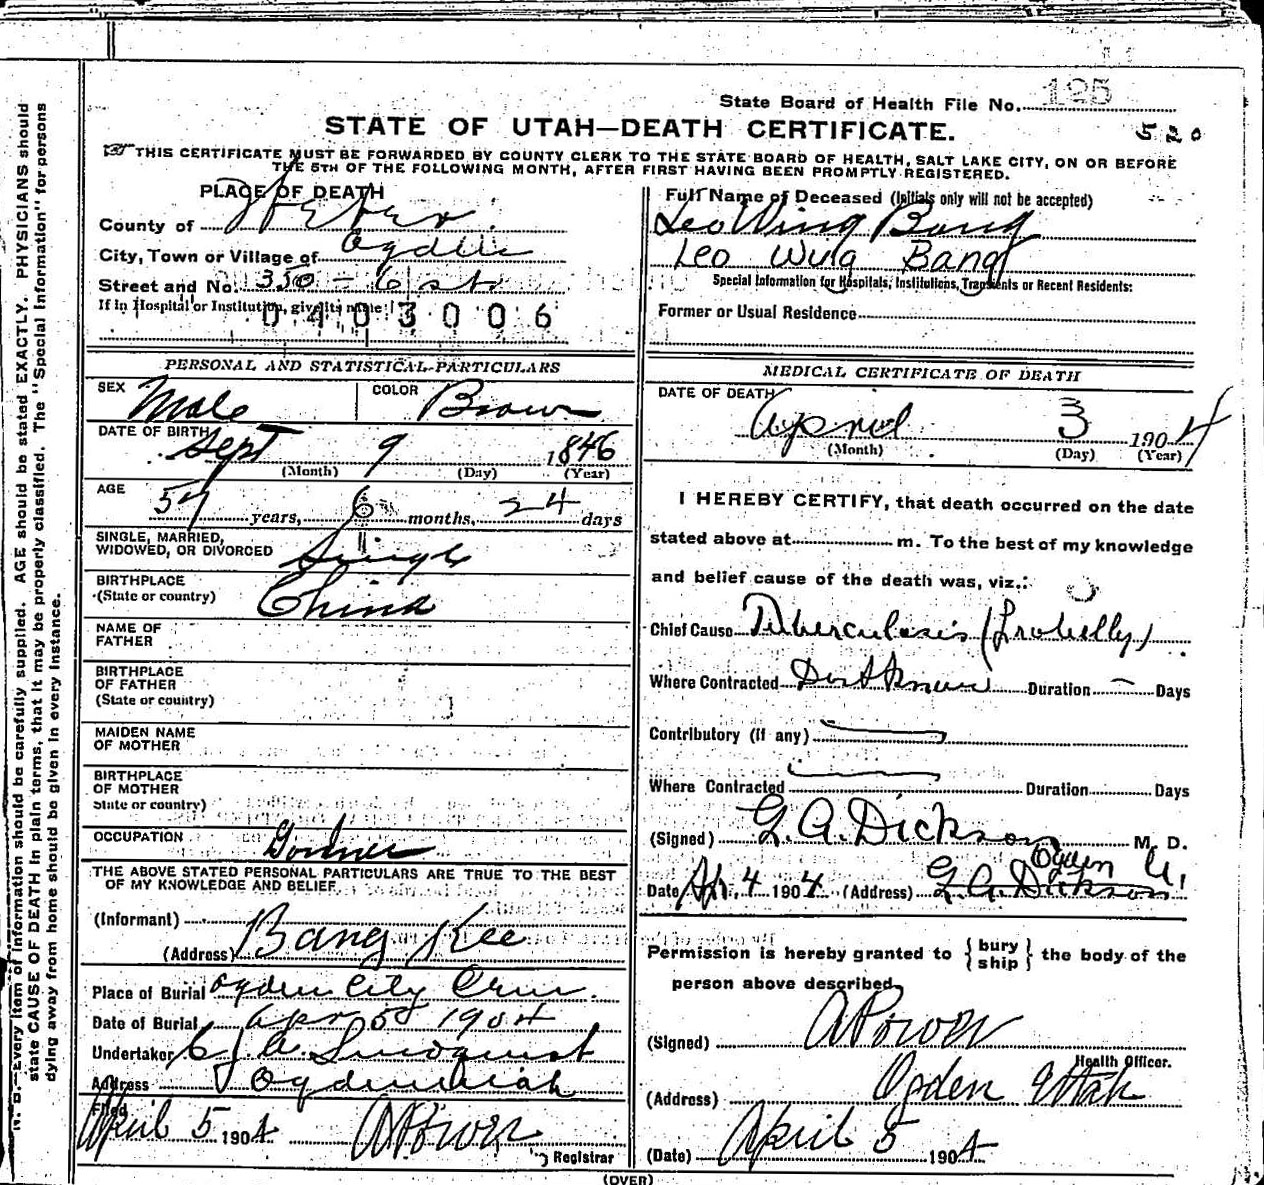 State Board of Health File No. 125
STATE OF UTAH—DEATH CERTIFICATE.
520
THIS CERTIFICATE MUST BE FORWARDED BY COUNTY CLERK TO THE STATE BOARD OF HEALTH, SALT LAKE CITY, ON OR BEFORE
THE 5TH OF THE FOLLOWING MONTH, AFTER FIRST HAVING BEEN PROMPTLY REGISTERED.
PLACE OF DEATH
County of Weber
City, Town or Village of Ogden
Street and No. 350 - 6 st
If in Hospital or Institution, give its name
0403006
Full Name of Deceased (Initials only will not be accepted)
Leo Wing Bang
Leo Wing Bang
Special Information for Hospitals, Institutions, Transients or Recent Residents:
Former or Usual Residence
PERSONAL AND STATISTICAL PARTICULARS
SEX Male COLOR Brown
DATE OF BIRTH Sept 9 1846
(Month) (Day) (Year)
AGE 57 years, 6 months, 24 days
SINGLE, MARRIED,
WIDOWED, OR DIVORCED Single
BIRTHPLACE
(State or country) China
NAME OF
FATHER
BIRTHPLACE
OF FATHER
(State or country)
MAIDEN NAME
OF MOTHER
BIRTHPLACE
OF MOTHER
State or country)
OCCUPATION Gardner
THE ABOVE STATED PERSONAL PARTICULARS ARE TRUE TO THE BEST
OF MY KNOWLEDGE AND BELIEF
(Informant)
(Address) Bang Kee
Place of Burial Ogden City Cem.
Date of Burial Apr 5 1904
Undertaker
Address Ogden Utah
Filed
April 5 1904
Registrar
MEDICAL CERTIFICATE OF DEATH
DATE OF DEATH
April 3 1904
(Month) (Day) (Year)
I HEREBY CERTIFY, that death occurred on the date
stated above at m. To the best of my knowledge
and belief cause of the death was, viz.:
Chief Cause Tuberculosis (Probably)
Where Contracted Dont know Duration — Days
Contributory (if any) —
Where Contracted — Duration Days
(Signed) G. A. Dickson M. D.
Ogden U.
Date Apr. 4 1904 (Address) G. A. Dickson
Permission is hereby granted to { bury
ship } the body of the
person above described,
(Signed)
Health Officer.
(Address) Ogden Utah
(Date) April 5 1904
(OVER)
N. B.—Every item of information should be carefully supplied. AGE should be stated EXACTLY. PHYSICIANS should
state CAUSE OF DEATH in plain terms, that it may be properly classified. The "Special Information" for persons
dying away from home should be given in every instance.